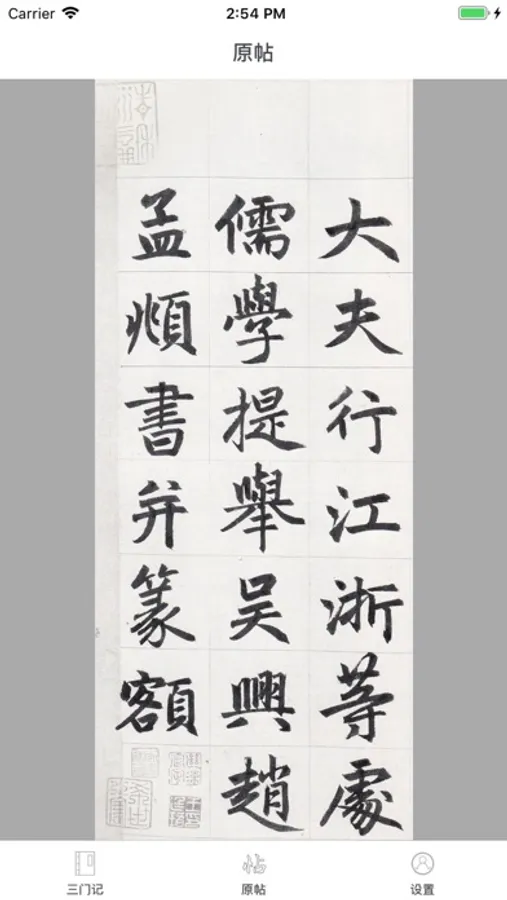 Carrier 2:54 PM
原帖
大夫行江浙等處
儒學提舉吴興趙
孟頫書并篆額
三门记 原帖 设置